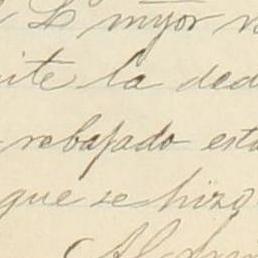 L mejor
ite la ded
rebajado est
que se hizo
Al